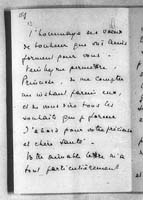 l'hommage des vœux
de bonheur que vos amis
forment pour vous.
Veuillez permettre,
Princesse, de me compter
au instant parmi eux,
et de vous dire tous les
souhaits que je forme
d'abord pour votre précieuse
et chère santé.
Votre aimable lettre m'a
tout particulièrement